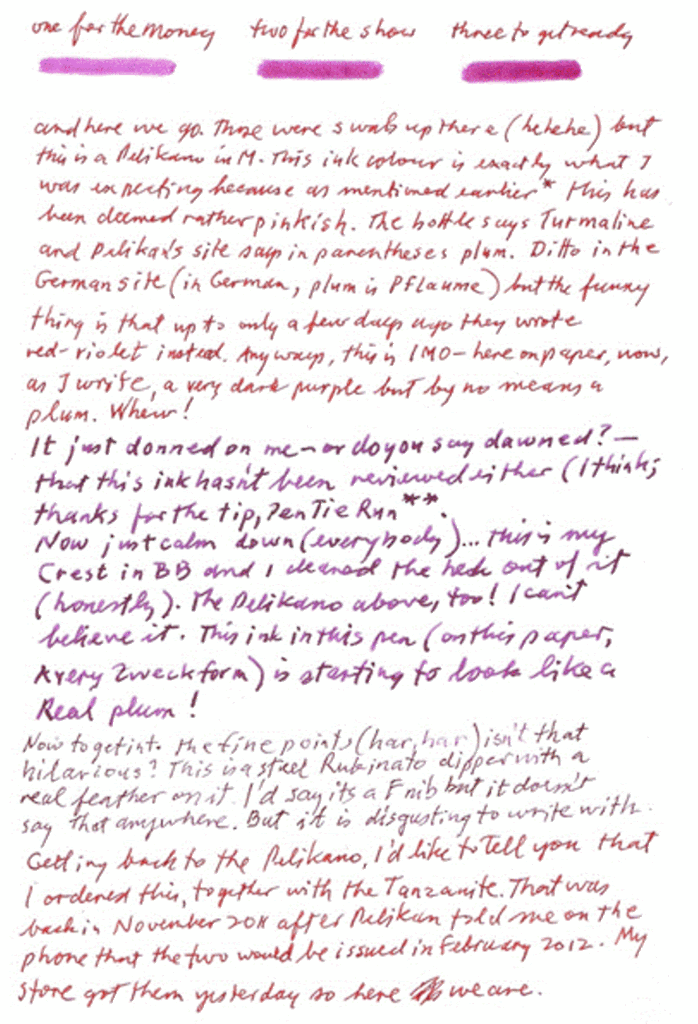 one for the money two for the show three to get ready
and here we go. Those were swabs up there (hehehe) but
this is a Pelikano in M. This ink colour is exactly what I
was expecting because as mentioned earlier* this has
been deemed rather pinkish. The bottle says Turmaline
and Pelikan's site says in parentheses plum. Ditto in the
German site (in German, plum is PFlaume) but the funny
thing is that up to only a few days ago they wrote
red-violet instead. Anyways, this is IMO - here on paper, now,
as I write, a very dark purple but by no means a
plum. Whew!
It just donned on me - or do you say dawned? -
that this ink hasn't been reviewed either (I think;
thanks for the tip, PenTieRun**.
Now just calm down (everybody)... This is my
Crest in BB and I cleaned the heck out of it
(honestly). The Pelikano above, too! I can't
believe it. This ink in this pen (on this paper,
Avery Zweckform) is starting to look like a
Real plum!
Now to get into the fine points (har, har) isn't that
hilarious? This is a steel Rubinato dipper with a
real feather on it. I'd say its a F nib but it doesn't
say that anywhere. But it is disgusting to write with.
Getting back to the Pelikano, I'd like to Tell you that
I ordered this, together with the Tanzanite. That was
back in November 2011 after Pelikan told me on the
phone that the two would be issued in February 2012. My
store got them yesterday so here we are.